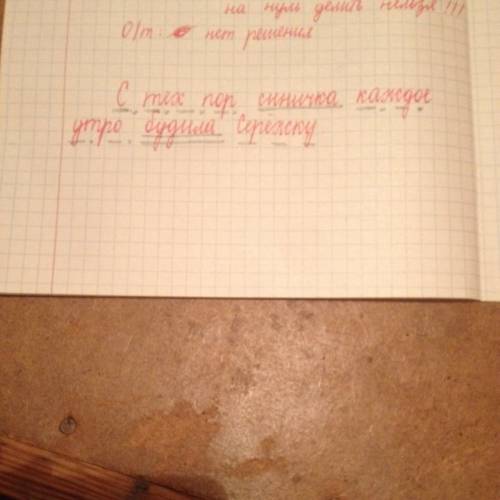 на нуль делить нельзя!!!
О/т: нет решения
С тех пор синичка каждое
утро будила Серёжку.